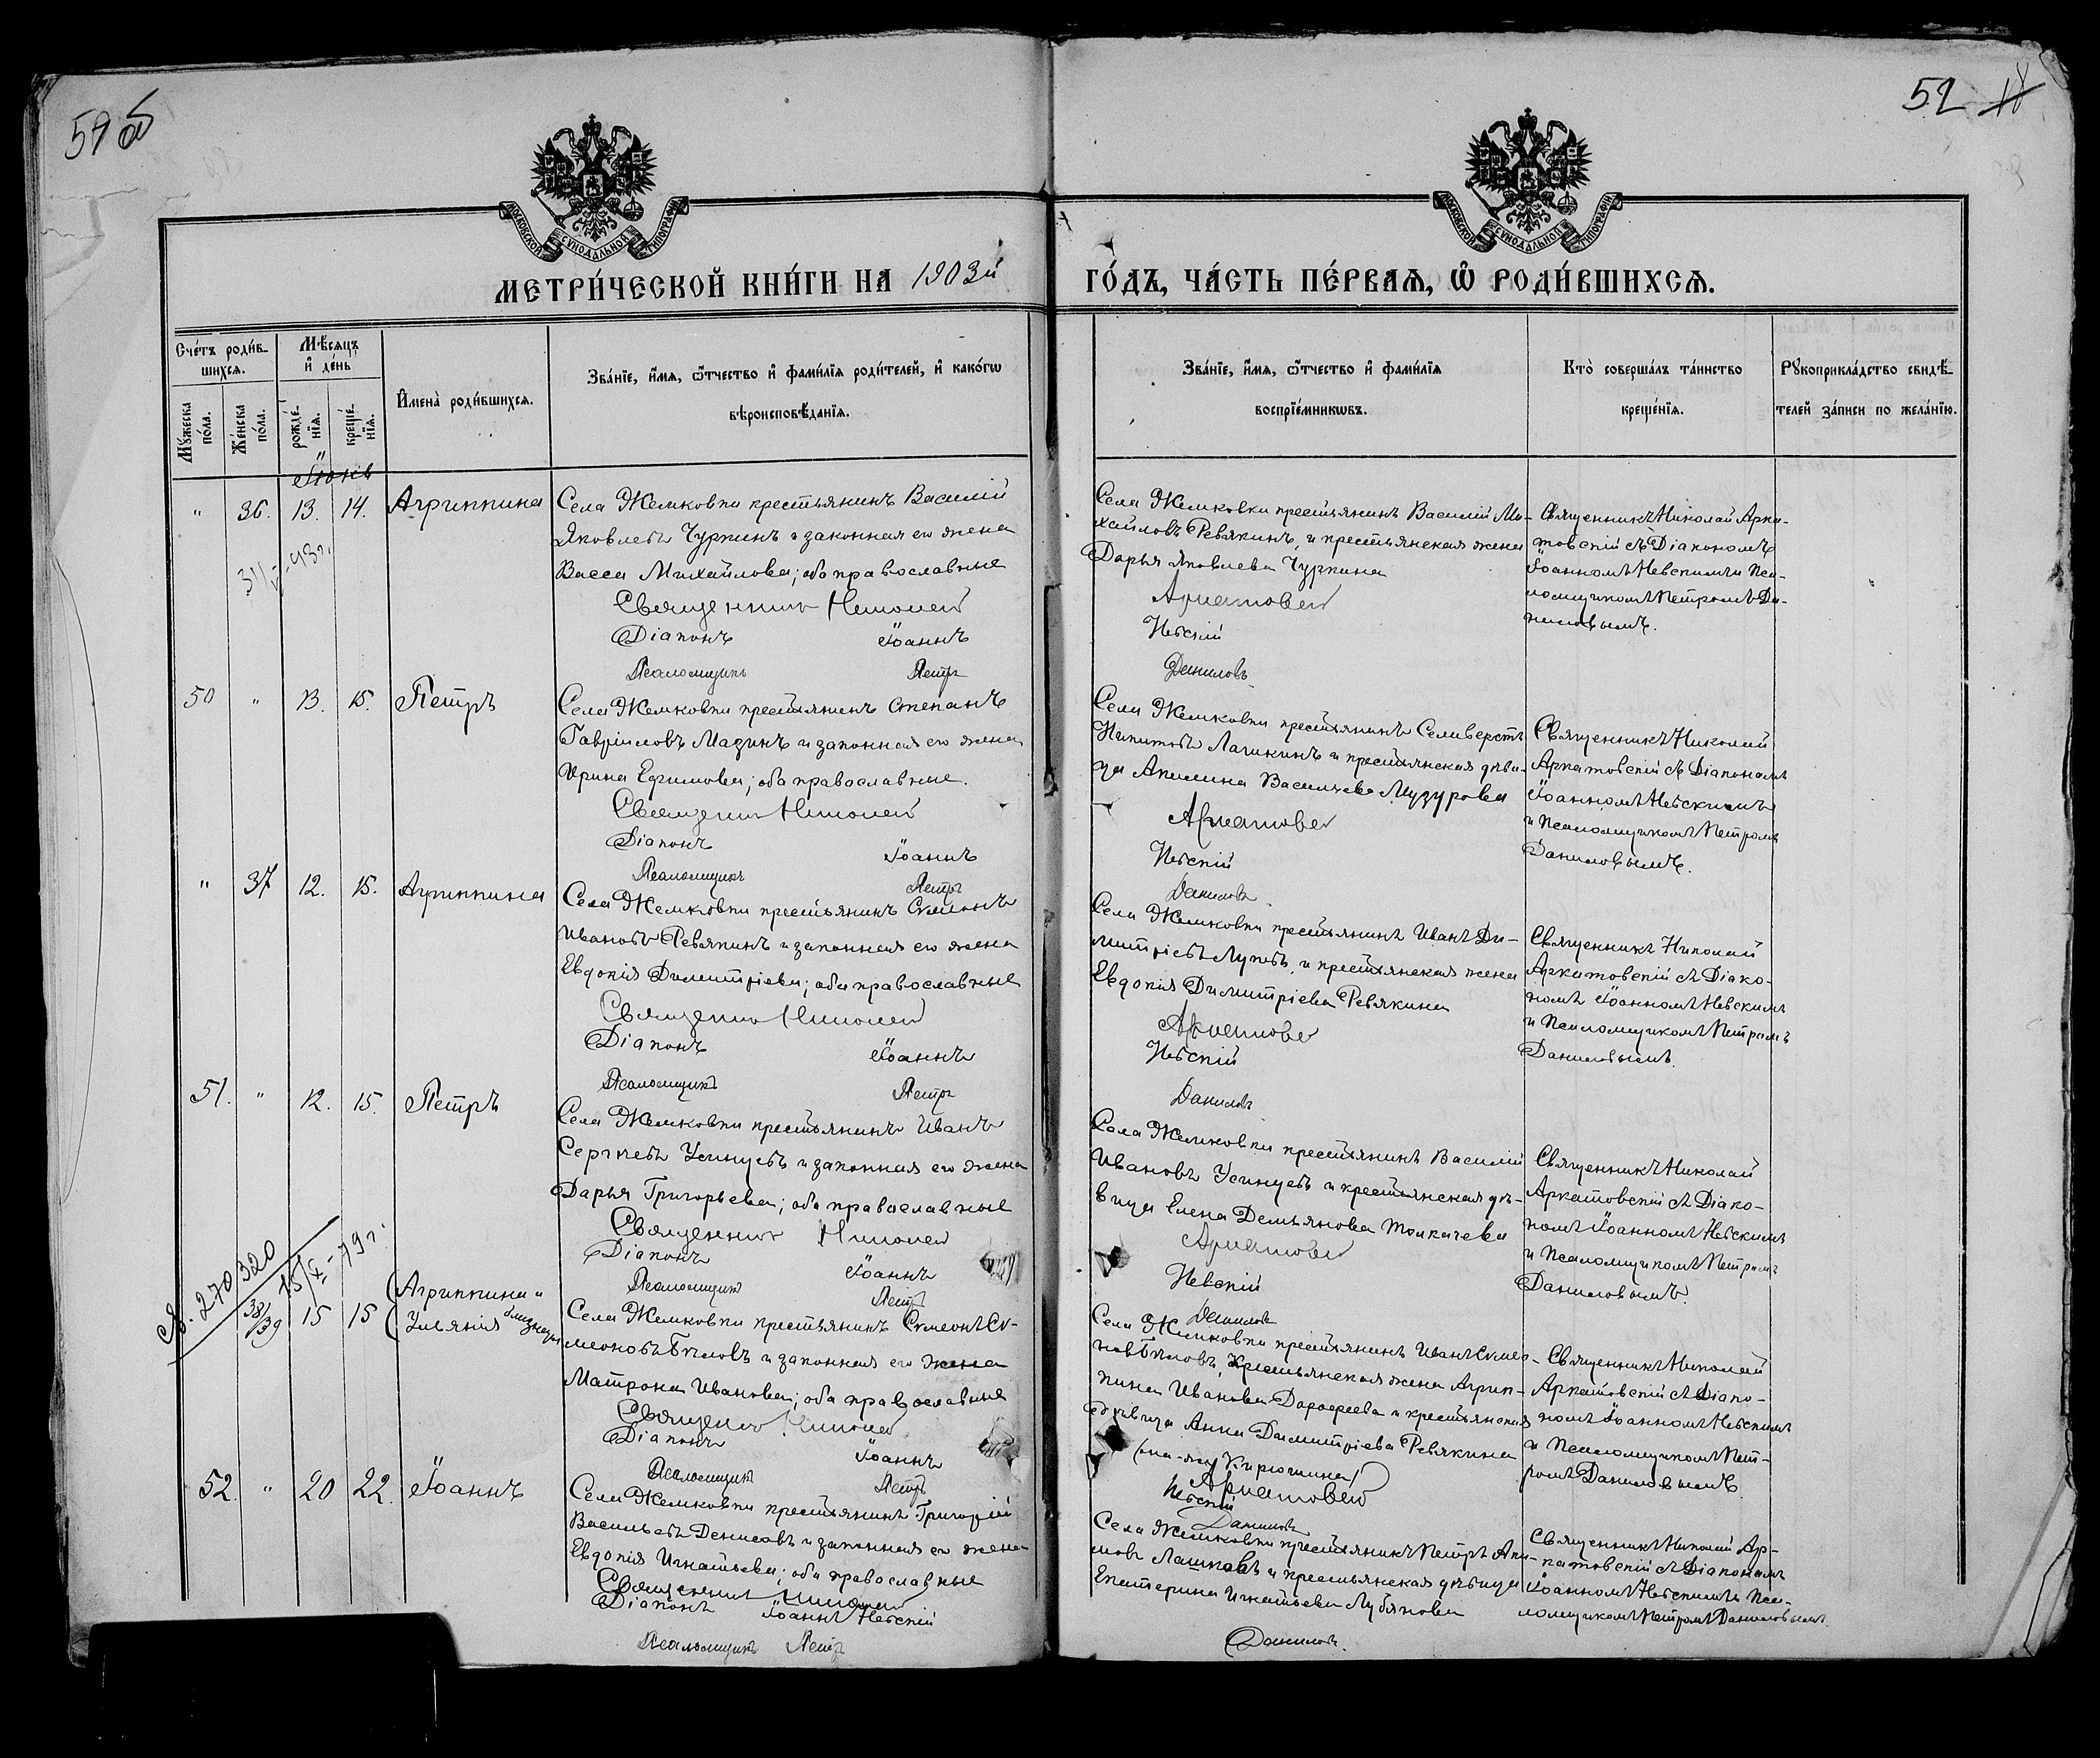 52 18
МОСКОВСКОЙ СѴНОДАЛЬНОЙ ТИПОГРАФІИ
МОСКОВСКОЙ СѴНОДАЛЬНОЙ ТИПОГРАФІИ
МЕТРИ́ЧЕСКОЙ КНИ́ГИ НА 1903й
ГО́ДЪ, ЧА́СТЬ ПЕ́РВАѦ, Ѡ҆ РОДИ́ВШИХСѦ.
Сче́тъ роди́в-
шихсѧ.
Мꙋ́жеска
по́ла.
Же́нска
по́ла.
Мѣ́сѧцъ
и҆ де́нь
рожде́-
нїѧ.
креще́-
нїѧ.
И҆мена̀ роди́вшихсѧ.
Зва́нїе, и҆́мѧ, ѻ҆́тчество и҆ фами́лїѧ роди́телей, и҆ како́гѡ
вѣроисповѣ́данїѧ.
Зва́нїе, и҆́мѧ, ѻ҆́тчество и҆ фами́лїѧ
воспрїе́мникѡвъ.
Кто̀ соверша́лъ та́инство
креще́нїѧ.
Рꙋкоприкла́дство свидѣ́-
телей за́писи по жела́нїю.
Іюнь
" 36. 13. 14. Агриппина
Села Жемковки крестьянинъ Василій
Яковлевъ Чуркинъ и законная его жена
Васса Михайлова; оба православные
Священникъ Николай
Діаконъ Іоаннъ
Псаломщикъ Петръ
Села Жемковки крестьянинъ Василій Ми-
хайловъ Ревякинъ, и крестьянская жена
Дарья Яковлева Чуркина
Аркатовскій
Невскій
Даниловъ
Священникъ Николай Арка-
товскій съ Діакономъ
Іоанномъ Невскимъ и Пса-
ломщикомъ Петромъ Да-
ниловымъ.
50 " 13. 15. Петръ
Села Жемковки крестьянинъ Степанъ
Гавріиловъ Мазинъ и законная его жена
Ирина Ефимова; оба православные.
Священникъ Николай
Діаконъ Іоаннъ
Псаломщикъ Петръ
Села Жемковки крестьянинъ Селиверстъ
Никитовъ Лашкинъ и крестьянская дѣви-
ца Акилина Василиева Музурова
Аркатовскій
Невскій
Даниловъ
Священникъ Николай
Аркатовскій съ Діакономъ
Іоанномъ Невскимъ
и Псаломщикомъ Петромъ
Даниловымъ.
" 37 12. 15. Агриппина
Села Жемковки крестьянинъ Сѵмеонъ
Ивановъ Ревякинъ и законная его жена
Евдокія Димитріева; оба православные
Священникъ Николай
Діаконъ Іоаннъ
Псаломщикъ Петръ
Села Жемковки крестьянинъ Иванъ Ди-
митріевъ, и крестьянская жена
Евдокія Димитріева Ревякина
Аркатовскій
Невскій
Даниловъ
Священникъ Николай
Аркатовскій съ Діако-
номъ Іоанномъ Невскимъ
и Псаломщикомъ Петромъ
Даниловымъ.
51. " 12. 15. Петръ
Села Жемковки крестьянинъ Иванъ
Сергѣевъ Усинцевъ и законная его жена
Дарья Григорьева; оба православные
Священникъ Николай
Діаконъ Іоаннъ
Псаломщикъ Петръ
Села Жемковки крестьянинъ Василій
Ивановъ Усинцевъ и крестьянская дѣ-
вица Елена Демьянова Толкачева
Аркатовскій
Невскій
Даниловъ
Священникъ Николай
Аркатовскій съ Діако-
номъ Іоанномъ Невскимъ
и Псаломщикомъ Петромъ
Даниловымъ.
270320
38/39 15 15 Агриппина и
Ульянія близнецы
Села Жемковки крестьянинъ Сѵмеонъ Сѵ-
меоновъ Бѣловъ и законная его жена
Матрона Иванова; оба православные
Священникъ Николай
Діаконъ Іоаннъ
Псаломщикъ Петръ
Села Жемковки крестьянинъ Иванъ Сѵмео-
новъ Бѣловъ, крестьянская жена Агрип-
пина Иванова Дорофеева и крестьянская
дѣвица Анна Димитріева Ревякина
Кирюшина/
Аркатовскій
Невскій
Даниловъ
Священникъ Николай
Аркатовскій съ Діако-
номъ Іоанномъ Невскимъ
и Псаломщикомъ Пет-
ромъ Даниловымъ.
52. " 20 22. Іоаннъ
Села Жемковки крестьянинъ Григорій
Васильевъ Денисовъ и законная его жена
Евдокія Игнатьева; оба православные
Священникъ Николай
Діаконъ Іоаннъ Невскій
Псаломщикъ Петръ
Села Жемковки крестьянинъ Петръ Аки-
мовъ Лашковъ и крестьянская дѣвица
Екатерина Игнатьева Лубянова
Даниловъ.
Священникъ Николай Ар-
катовскій съ Діакономъ
Іоанномъ Невскимъ и Пса-
ломщикомъ Петромъ Даниловымъ.